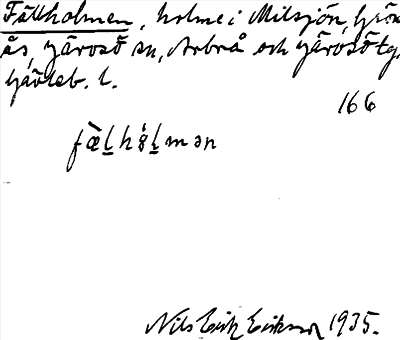 Fällholmen, holme i Milsjön, Grön
ås, Järvsö sn, Arbrå och Järvsö tg,
Gävleb. l.
166
fæ̀l̠hól̠mən
Nils Erik Erikson 1935.